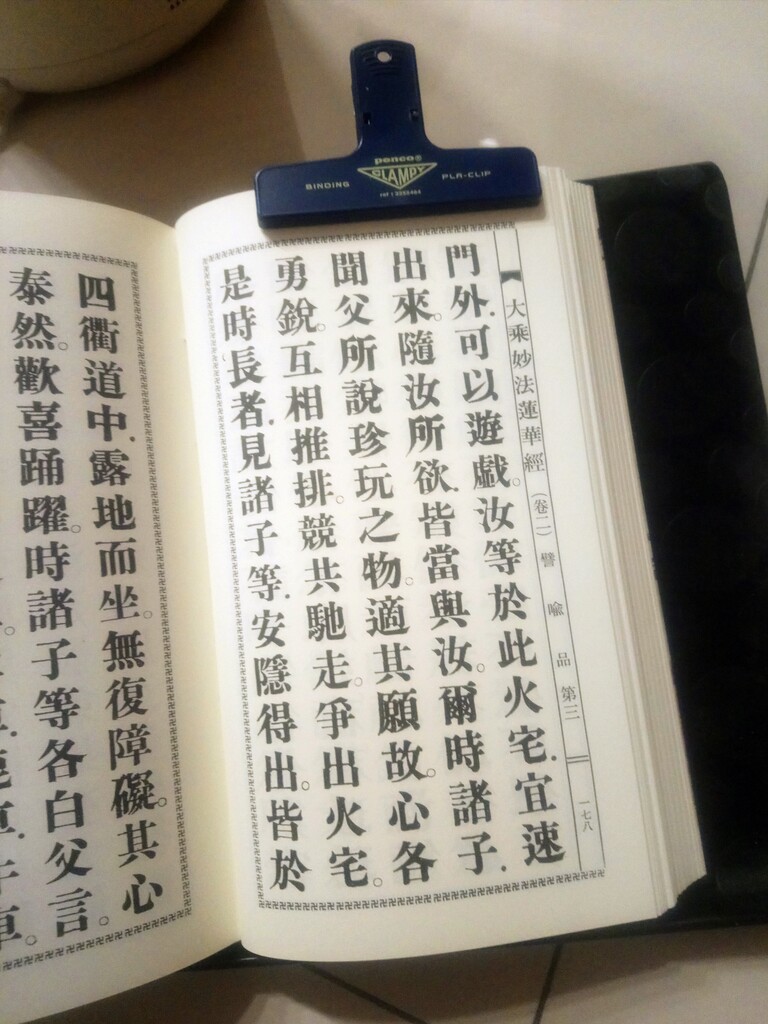 penco®
CLAMPY
BINDING
PLA-CLIP
大乘妙法蓮華經 (卷二) 譬喻品第三 一七八
門外.可以遊戲。汝等於此火宅.宜速
出來。隨汝所欲.皆當與汝。爾時諸子.
聞父所說珍玩之物。適其願故。心各
勇銳。互相推排。競共馳走。爭出火宅。
是時長者.見諸子等.安隱得出。皆於
四衢道中.露地而坐。無復障礙。其心
泰然。歡喜踊躍。時諸子等各白父言。